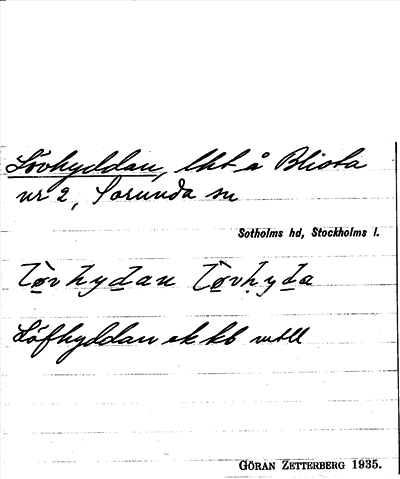 Lövhyddan, lht å Blista
nr 2, Sorunda sn
Sotholms hd, Stockholms l.
Löfhyddan ek kb
GÖRAN ZETTERBERG 1935.